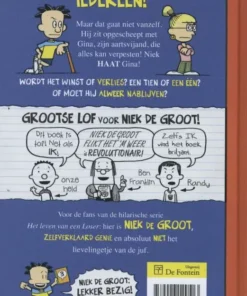 IEDEREEN!
Maar dat gaat niet vanzelf.
Hij zit opgescheept met
Gina, zijn aartsvijand, die
alles kan verpesten! Niek
HAAT Gina!
WORDT HET WINST OF VERLIES? EEN TIEN OF EEN EEN?
OF MOET HIJ ALWEER NABLIJVEN?
GROOTSE LOF VOOR NIEK DE GROOT!
Dit boek is
net zo
als IK!
NIEK DE GROOT
FLIKT HET'M WEER
REVOLUTIONAIR!
Zelfs IK
vond het boek
briljant.
onze
held
Ben
Franklin
Randy
Voor de fans van de hilarische serie
Het leven van een Loser: hier is NIEK DE GROOT,
ZELFVERKLAARD GENIE en absoluut NIET het
lievelingetje van de juf.
NIEK DE GROOT:
LEKKER BEZIG!
Uitgeverij
De Fontein